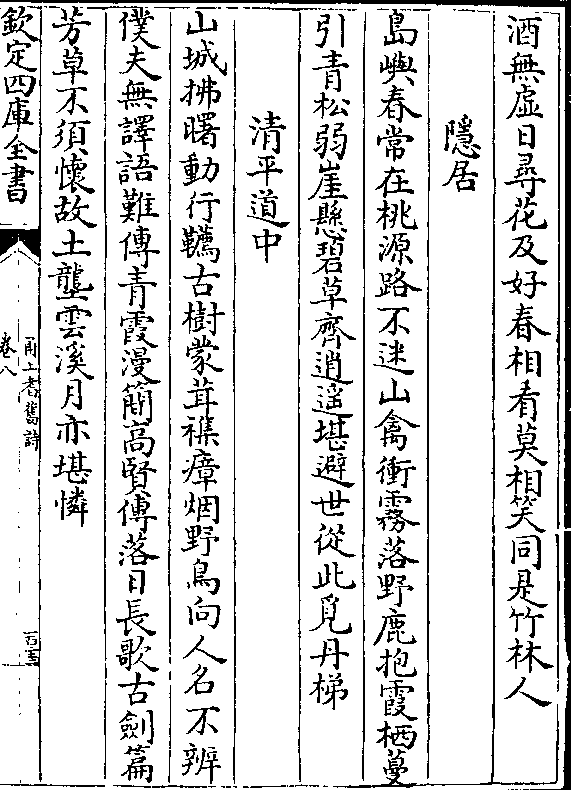 酒無虛日尋花及好春相看莫相笑同是竹林人
隱居
島嶼春常在桃源路不迷山禽衝霧落野鹿抱霞栖蔓
引青松弱崖懸碧草齊逍遥堪避世從此覓丹梯
清平道中
山城拂曙動行韉古樹蒙茸襍瘴烟野鳥向人名不辨
僕夫無譯語難傳青霞漫簡高賢傳落日長歌古劍篇
芳草不須懷故土壟雲溪月亦堪憐
欽定四庫全書
甬上耆舊詩
卷八